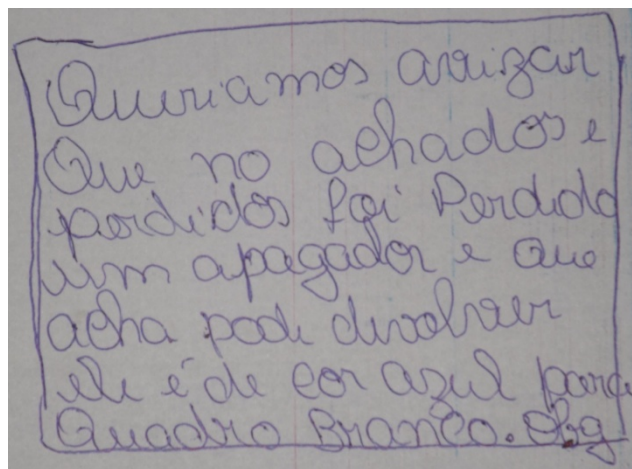 Queriamos avizar
Que no achados e
perdidos foi Perdido
um apagador e que
acha pode divolver
ele é de cor azul para
Quadro Branco. Obg